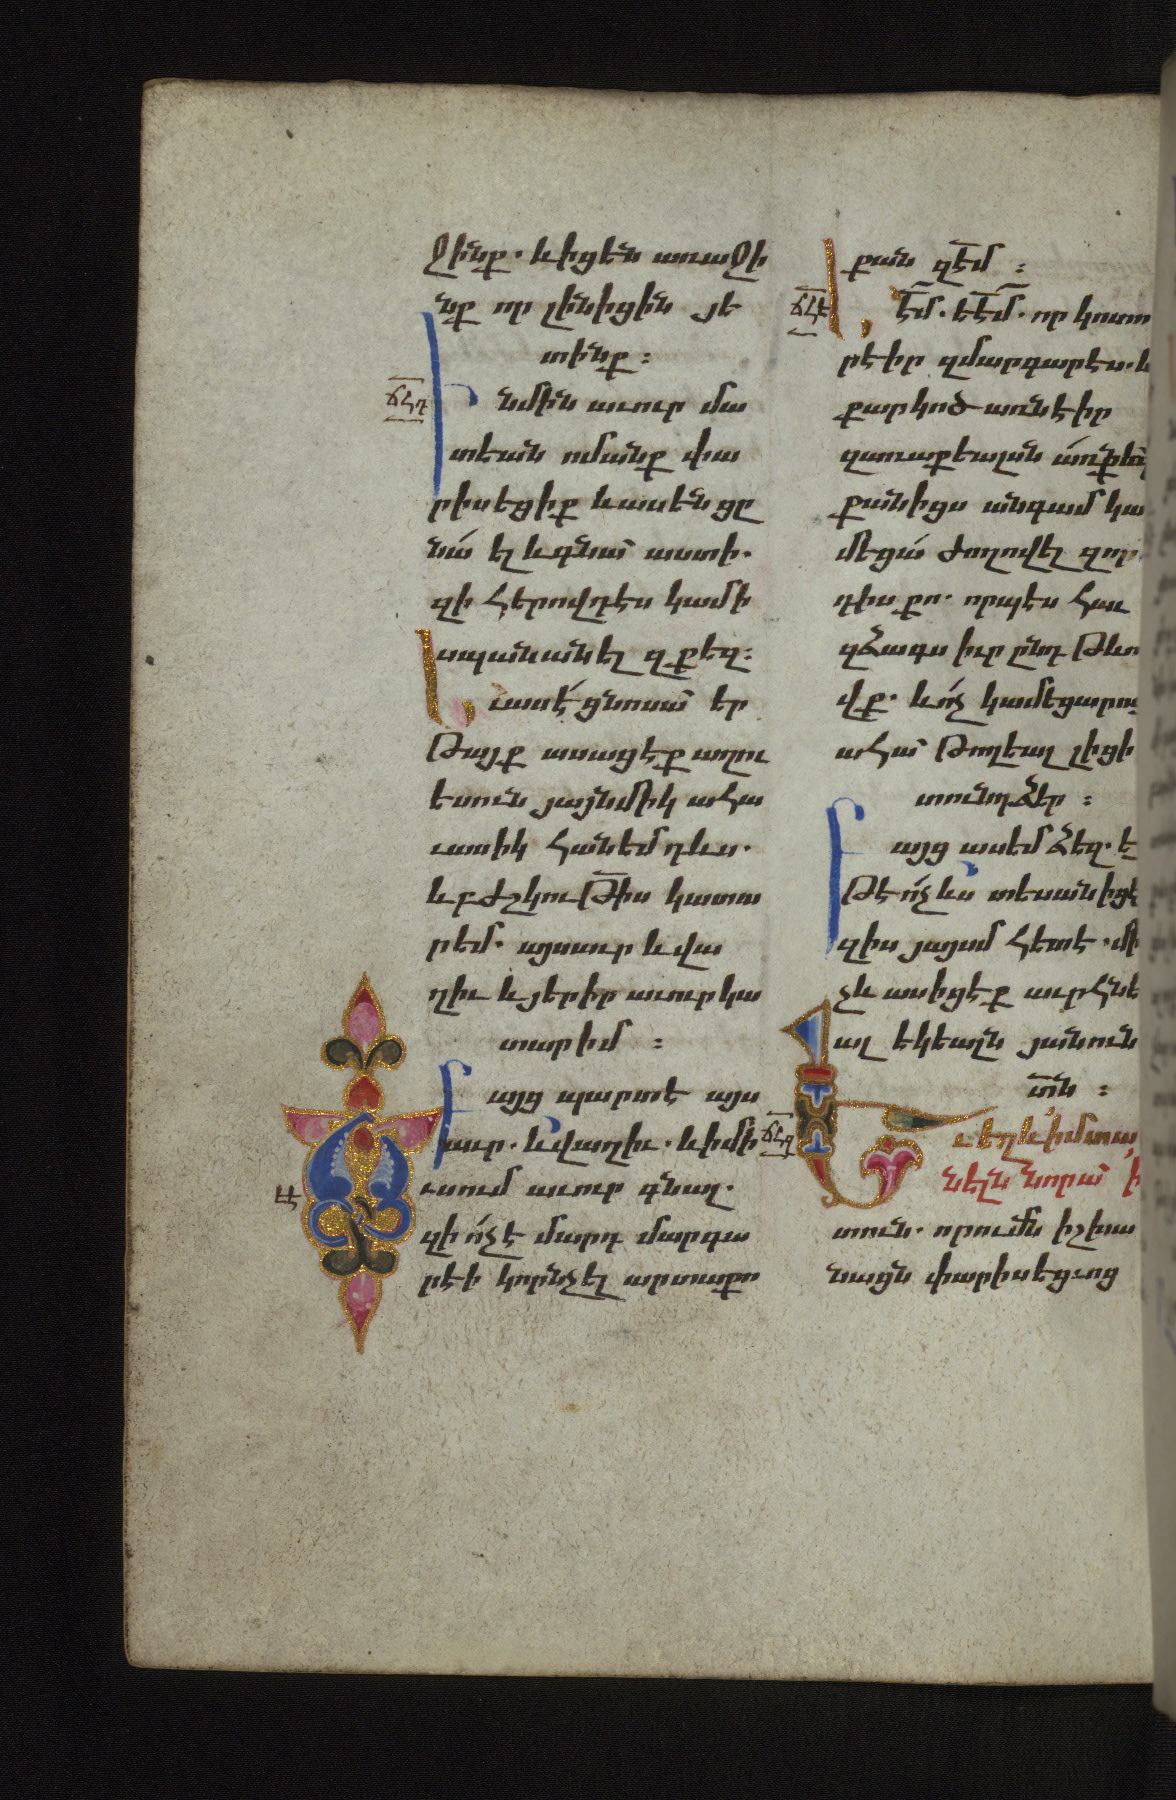 ջինք. և իցեն առաջի
նք որ լինիցին յե
տինք :
ՃՀԴ
Ի նմին աւուր մա
տեան ոմանք փա
րիսեցիք և ասեն ցը
նա՛ ել և գնա՛ աստի.
զի հերովդէս կամի
սպանանել զքեզ:
Եւ ասէ՛ ցնոսա՛ եր
թայք ասացէք աղու
եսուն յայնմիկ ահա
ւասիկ հանեմ դևս.
և բժշկութիս կատա
րեմ. այսաւր և վա
ղիւ և յերիր աւուր կա
տարիմ :
Բայց պարտ է այս
աւր. և վաղիւ. և իմի
ւսում աւուր գնալ.
զի ո՛չ է մարդ մարգա
րէի կորնչել արտաքո
քան զէմ :
ՃՀԵ
Եէմ. եէմ. որ կոտո
րէիր զմարգարէս. և
քարկոծ առնէիր
զառաքեալսն առ քեզ
քանիցս անգամ կա
մեցա՛ ժողովել զոր
դիս քո. որպէս հաւ
զձագս իւր ընդ թևո
վք. և ո՛չ կամեցարու
ահա՛ թողեալ լիցի
տունդ ձեր :
Բայց ասեմ ձեզ. ե
թէ ո՛չ ևս տեսանիցէ
զիս յայսմ հետէ. մի
նչև ասիցէք աւրհնե
ալ եկեալն յանուն
տն :
ՃՀԶ
Եւ եղև ի մտա
նելն նորա՛ ի
տուն. ուրումն իշխա
նացն փարիսեցւոց